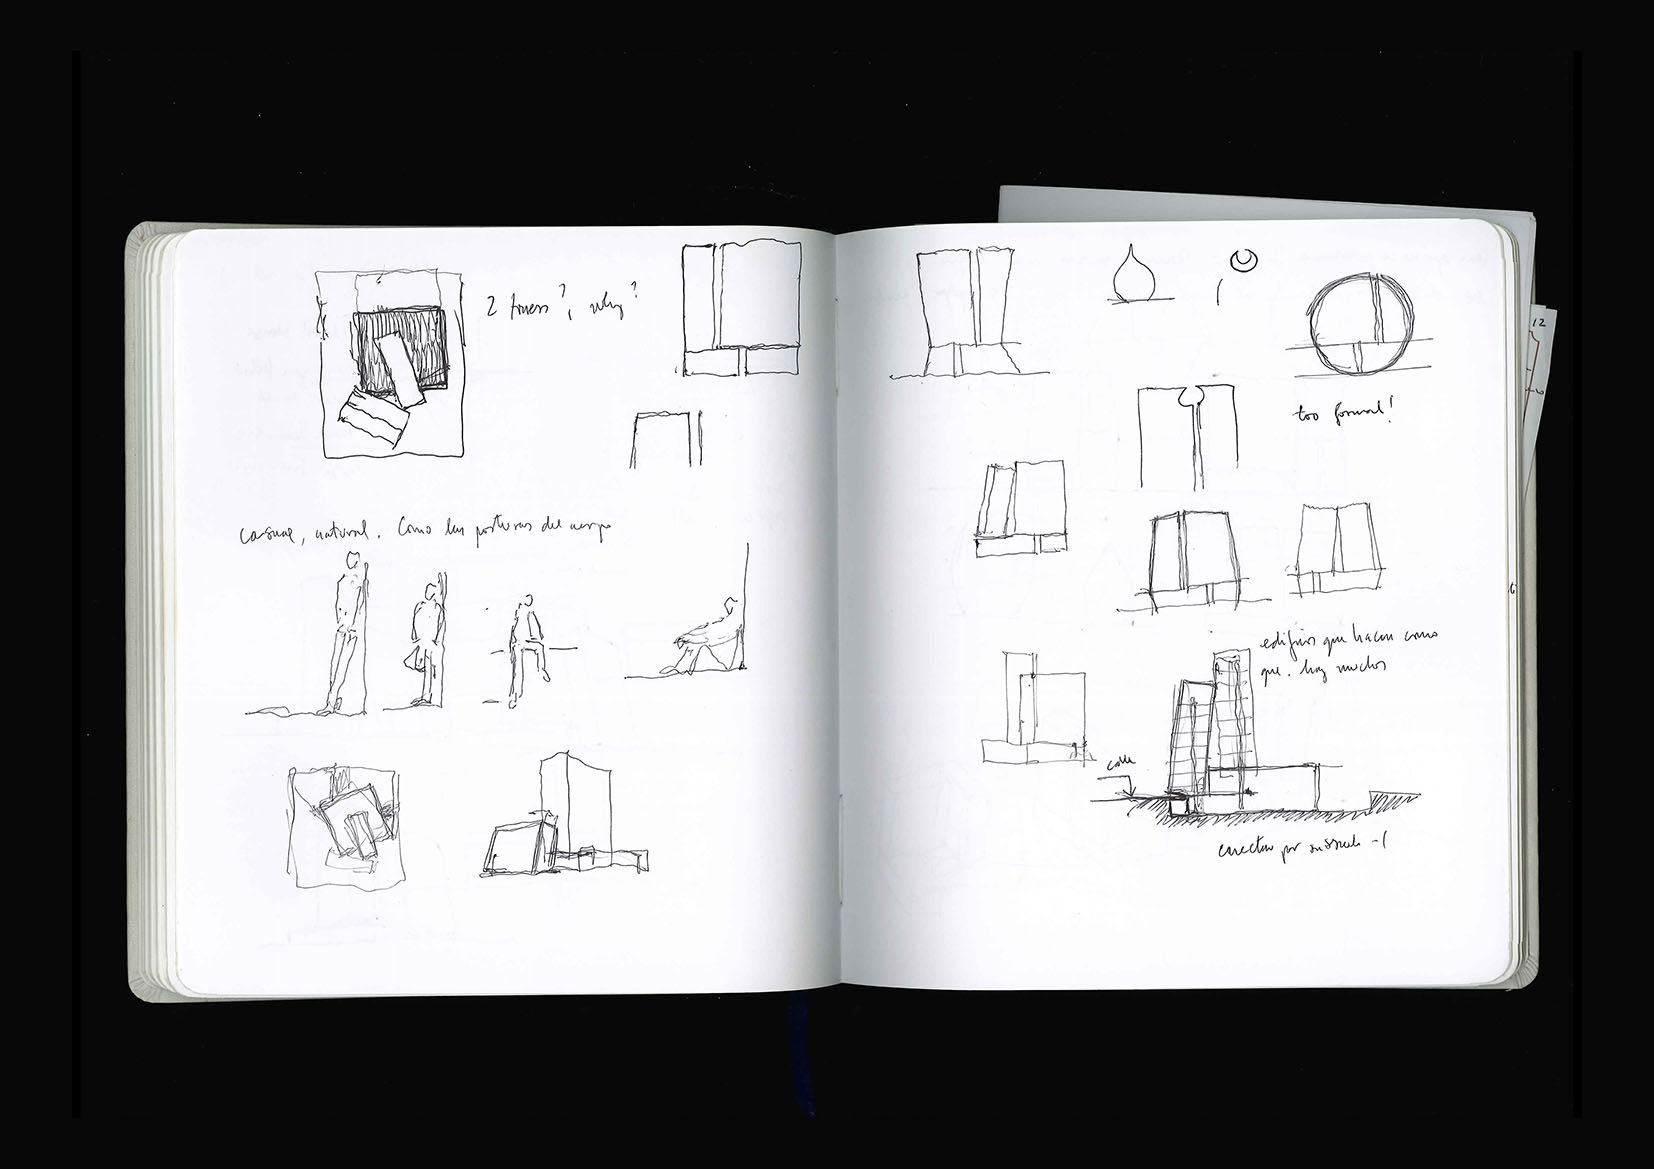 2 towers?, why?
casual, natural. Como las posturas del cuerpo
too formal!
edificios que hacen como
que. hay muchos
calle
por -1
12